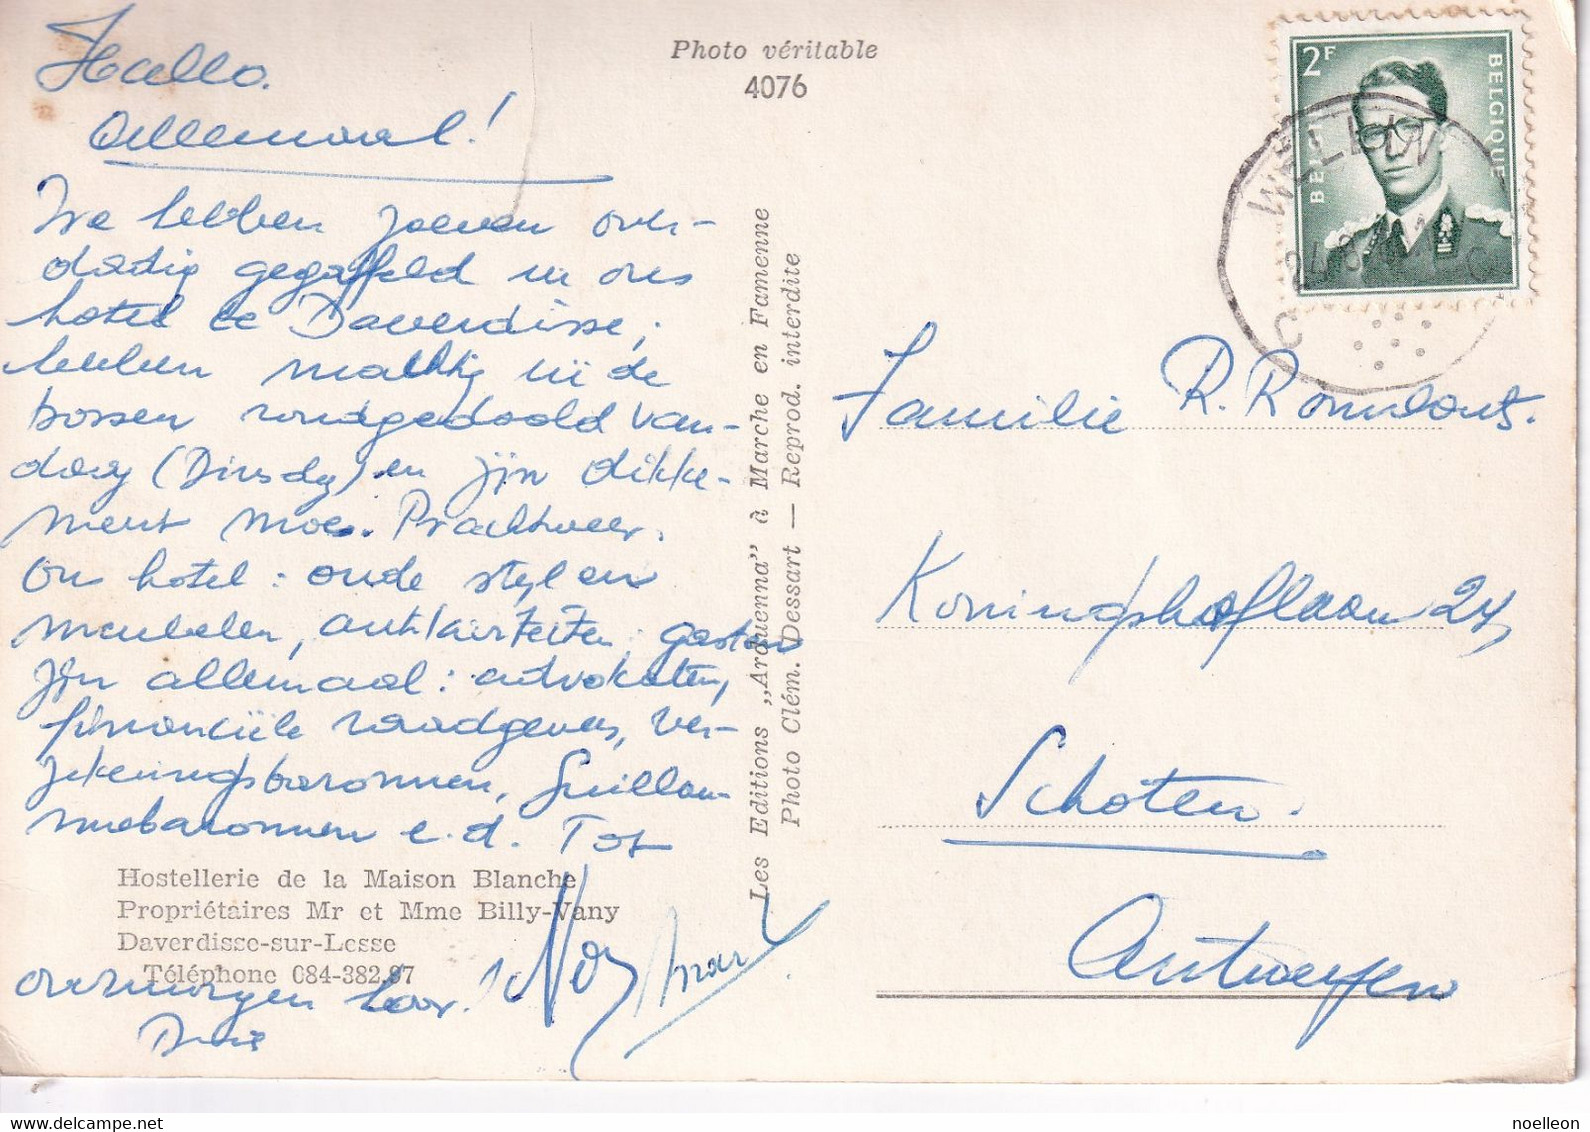 Hallo.
Allemaal!
We hebben zoeven over-
dadig gegaffeld in ons
hotel te Daverdisse;
hebben machtig in de
bossen rondgedoold van-
daag (Dinsdg) en zijn
moe. Prachtweer.
On hotel: oude styl en
meubelen, antikiteiten; gasten
zijn allemaal: advokaten,
financiële raadgevers, ver-
zekeringsbaronnen, Guillau-
mebaronnen e.d. Tot
overmorgen hoor.
Photo véritable
4076
Les Editions „Arduenna" à Marche en Famenne
Photo Clém. Dessart — Reprod. interdite
Hostellerie de la Maison Blanche
Propriétaires Mr et Mme Billy-Vany
Daverdisse-sur-Lesse
Téléphone 084-382.87
2F
BELGIE BELGIQUE
WELLIN
Familie R. Romelouts.
Koningshoflaan 24,
Schoten.
Antwerpen
noelleon